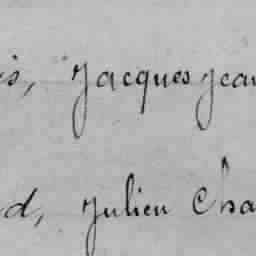 is, Jacques Jean
d, Julien Cha